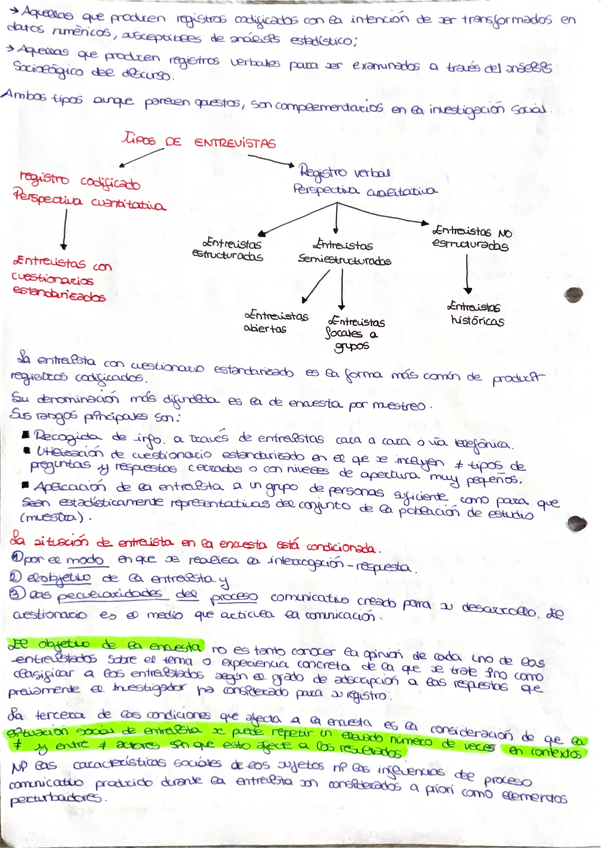 → Aquellos que producen registros codificados con la intención de ser transformados en
datos numéricos, susceptibles de análisis estadístico;
→ Aquellas que producen registros verbales para ser examinados a través del análisis
Sociológico del discurso.
Ambos tipos aunque parecen opuestos, son complementarios en la investigación social.
TIPOS DE ENTREVISTAS
registro codificado
Perspectiva cuantitativa
Registro verbal
Perspectiva cualitativa
Entrevistas con
cuestionarios
estandarizados
Entrevistas
estructuradas
Entrevistas
Semiestructuradas
Entrevistas NO
estructuradas
Entrevistas
abiertas
Entrevistas
focales a
grupos
Entrevistas
históricas
La entrevista con cuestionario estandarizado es la forma más común de producir
registros codificados.
Su denominación más difundida es la de encuesta por muestreo.
Sus rangos principales son:
▪ Recogida de info. a través de entrevistas cara a cara o vía telefónica.
▪ Utilización de cuestionario estandarizado en el que se incluyen ≠ tipos de
preguntas y respuestas cerradas o con niveles de apertura muy pequeños.
▪ Aplicación de la entrevista a un grupo de personas suficiente como para que
sean estadísticamente representativas del conjunto de la población de estudio
(muestra).
La situación de entrevista en la encuesta está condicionada.
① por el modo en que se realiza la interrogación-respuesta.
② el objetivo de la entrevista y
③ las peculiaridades del proceso comunicativo creado para su desarrollo. El
cuestionario es el medio que articula la comunicación.
El objetivo de la encuesta no es tanto conocer la opinión de cada uno de los
entrevistados sobre el tema o experiencia concreta de la que se trate sino como
clasificar a los entrevistados según el grado de adscripción a las respuestas que
previamente el investigador ha considerado para su registro.
La tercera de las condiciones que afecta a la encuesta es la consideración de que la
situación social de entrevista se puede repetir un elevado número de veces en contextos
≠ y entre ≠ actores sin que esto afecte a los resultados.
Ni las características sociales de los sujetos ni las influencias del proceso
comunicativo producido durante la entrevista son considerados a priori como elementos
perturbadores.